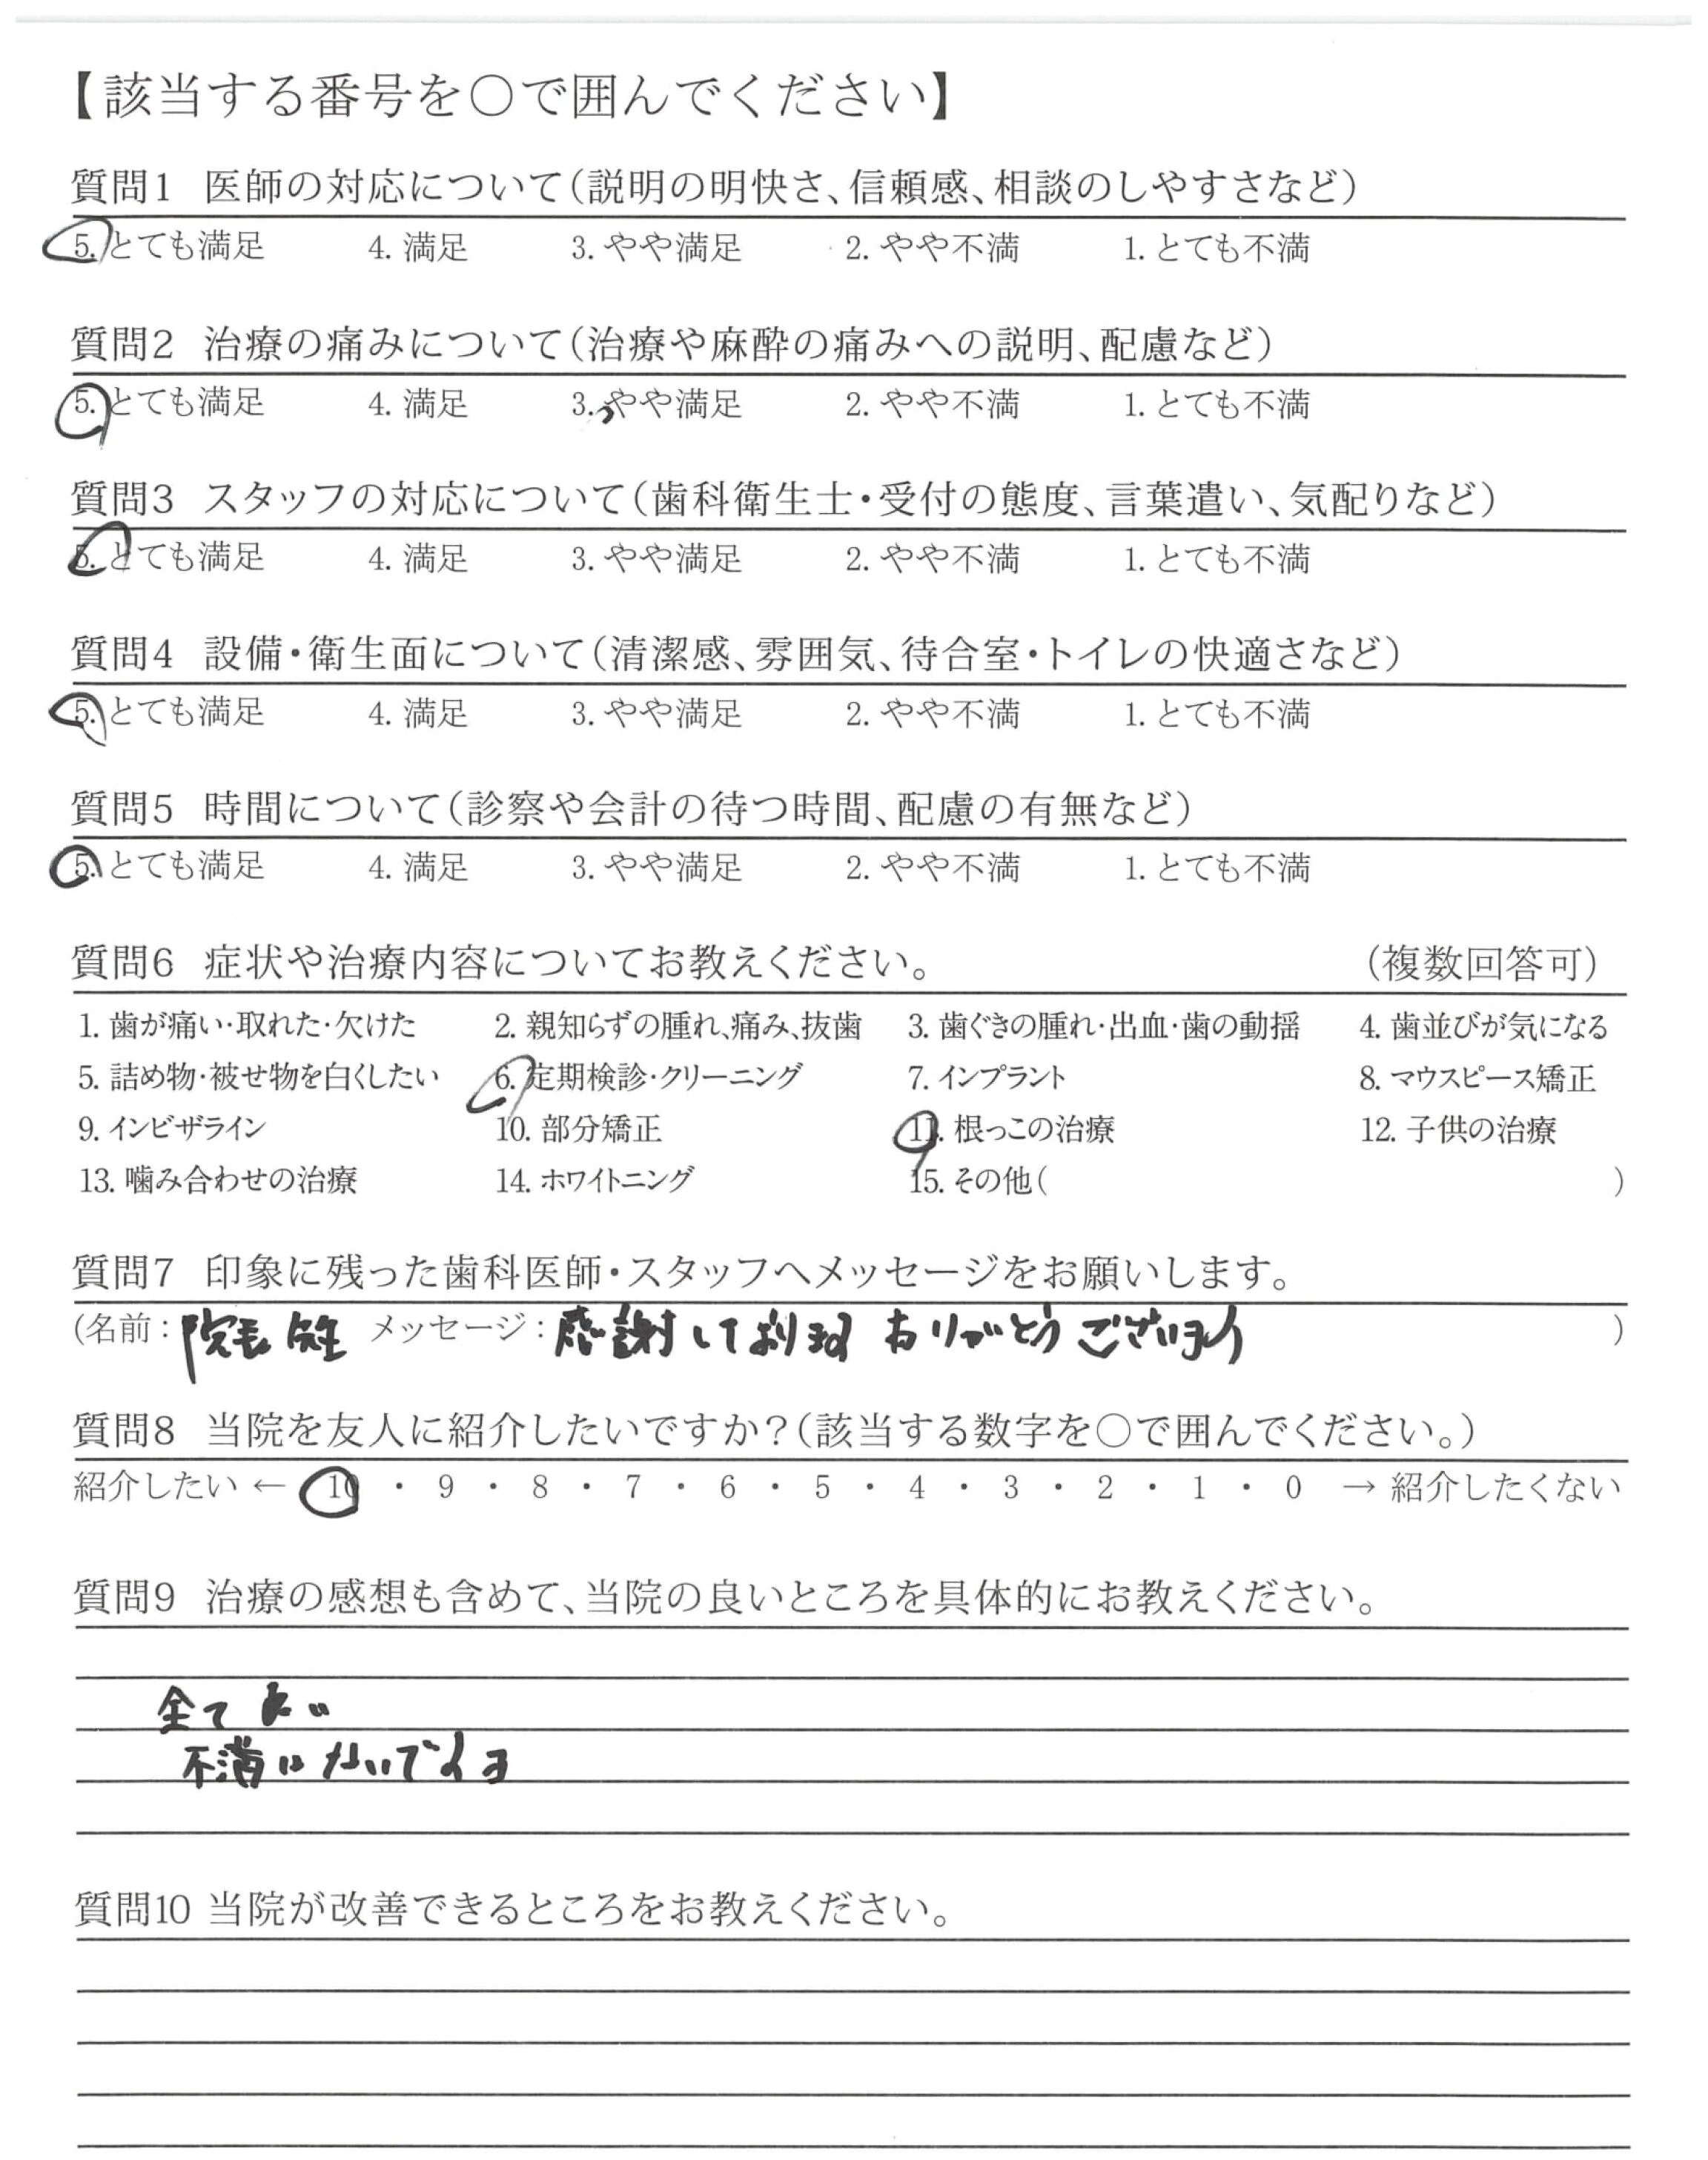 【該当する番号を○で囲んでください】
質問1 医師の対応について(説明の明快さ、信頼感、相談のしやすさなど)
5. とても満足 4. 満足 3. やや満足 2. やや不満 1. とても不満
質問2 治療の痛みについて(治療や麻酔の痛みへの説明、配慮など)
5. とても満足 4. 満足 3. やや満足 2. やや不満 1. とても不満
質問3 スタッフの対応について(歯科衛生士・受付の態度、言葉遣い、気配りなど)
5. とても満足 4. 満足 3. やや満足 2. やや不満 1. とても不満
質問4 設備・衛生面について(清潔感、雰囲気、待合室・トイレの快適さなど)
5. とても満足 4. 満足 3. やや満足 2. やや不満 1. とても不満
質問5 時間について(診察や会計の待つ時間、配慮の有無など)
5. とても満足 4. 満足 3. やや満足 2. やや不満 1. とても不満
質問6 症状や治療内容についてお教えください。 (複数回答可)
1. 歯が痛い・取れた・欠けた 2. 親知らずの腫れ、痛み、抜歯 3. 歯ぐきの腫れ・出血・歯の動揺 4. 歯並びが気になる
5. 詰め物・被せ物を白くしたい 6. 定期検診・クリーニング 7. インプラント 8. マウスピース矯正
9. インビザライン 10. 部分矯正 11. 根っこの治療 12. 子供の治療
13. 噛み合わせの治療 14. ホワイトニング 15. その他( )
質問7 印象に残った歯科医師・スタッフへメッセージをお願いします。
(名前: 院長先生 メッセージ: 感謝しております ありがとうございます )
質問8 当院を友人に紹介したいですか?(該当する数字を○で囲んでください。)
紹介したい ← 10 ・ 9 ・ 8 ・ 7 ・ 6 ・ 5 ・ 4 ・ 3 ・ 2 ・ 1 ・ 0 → 紹介したくない
質問9 治療の感想も含めて、当院の良いところを具体的にお教えください。
全て良い
不満はないです
質問10 当院が改善できるところをお教えください。